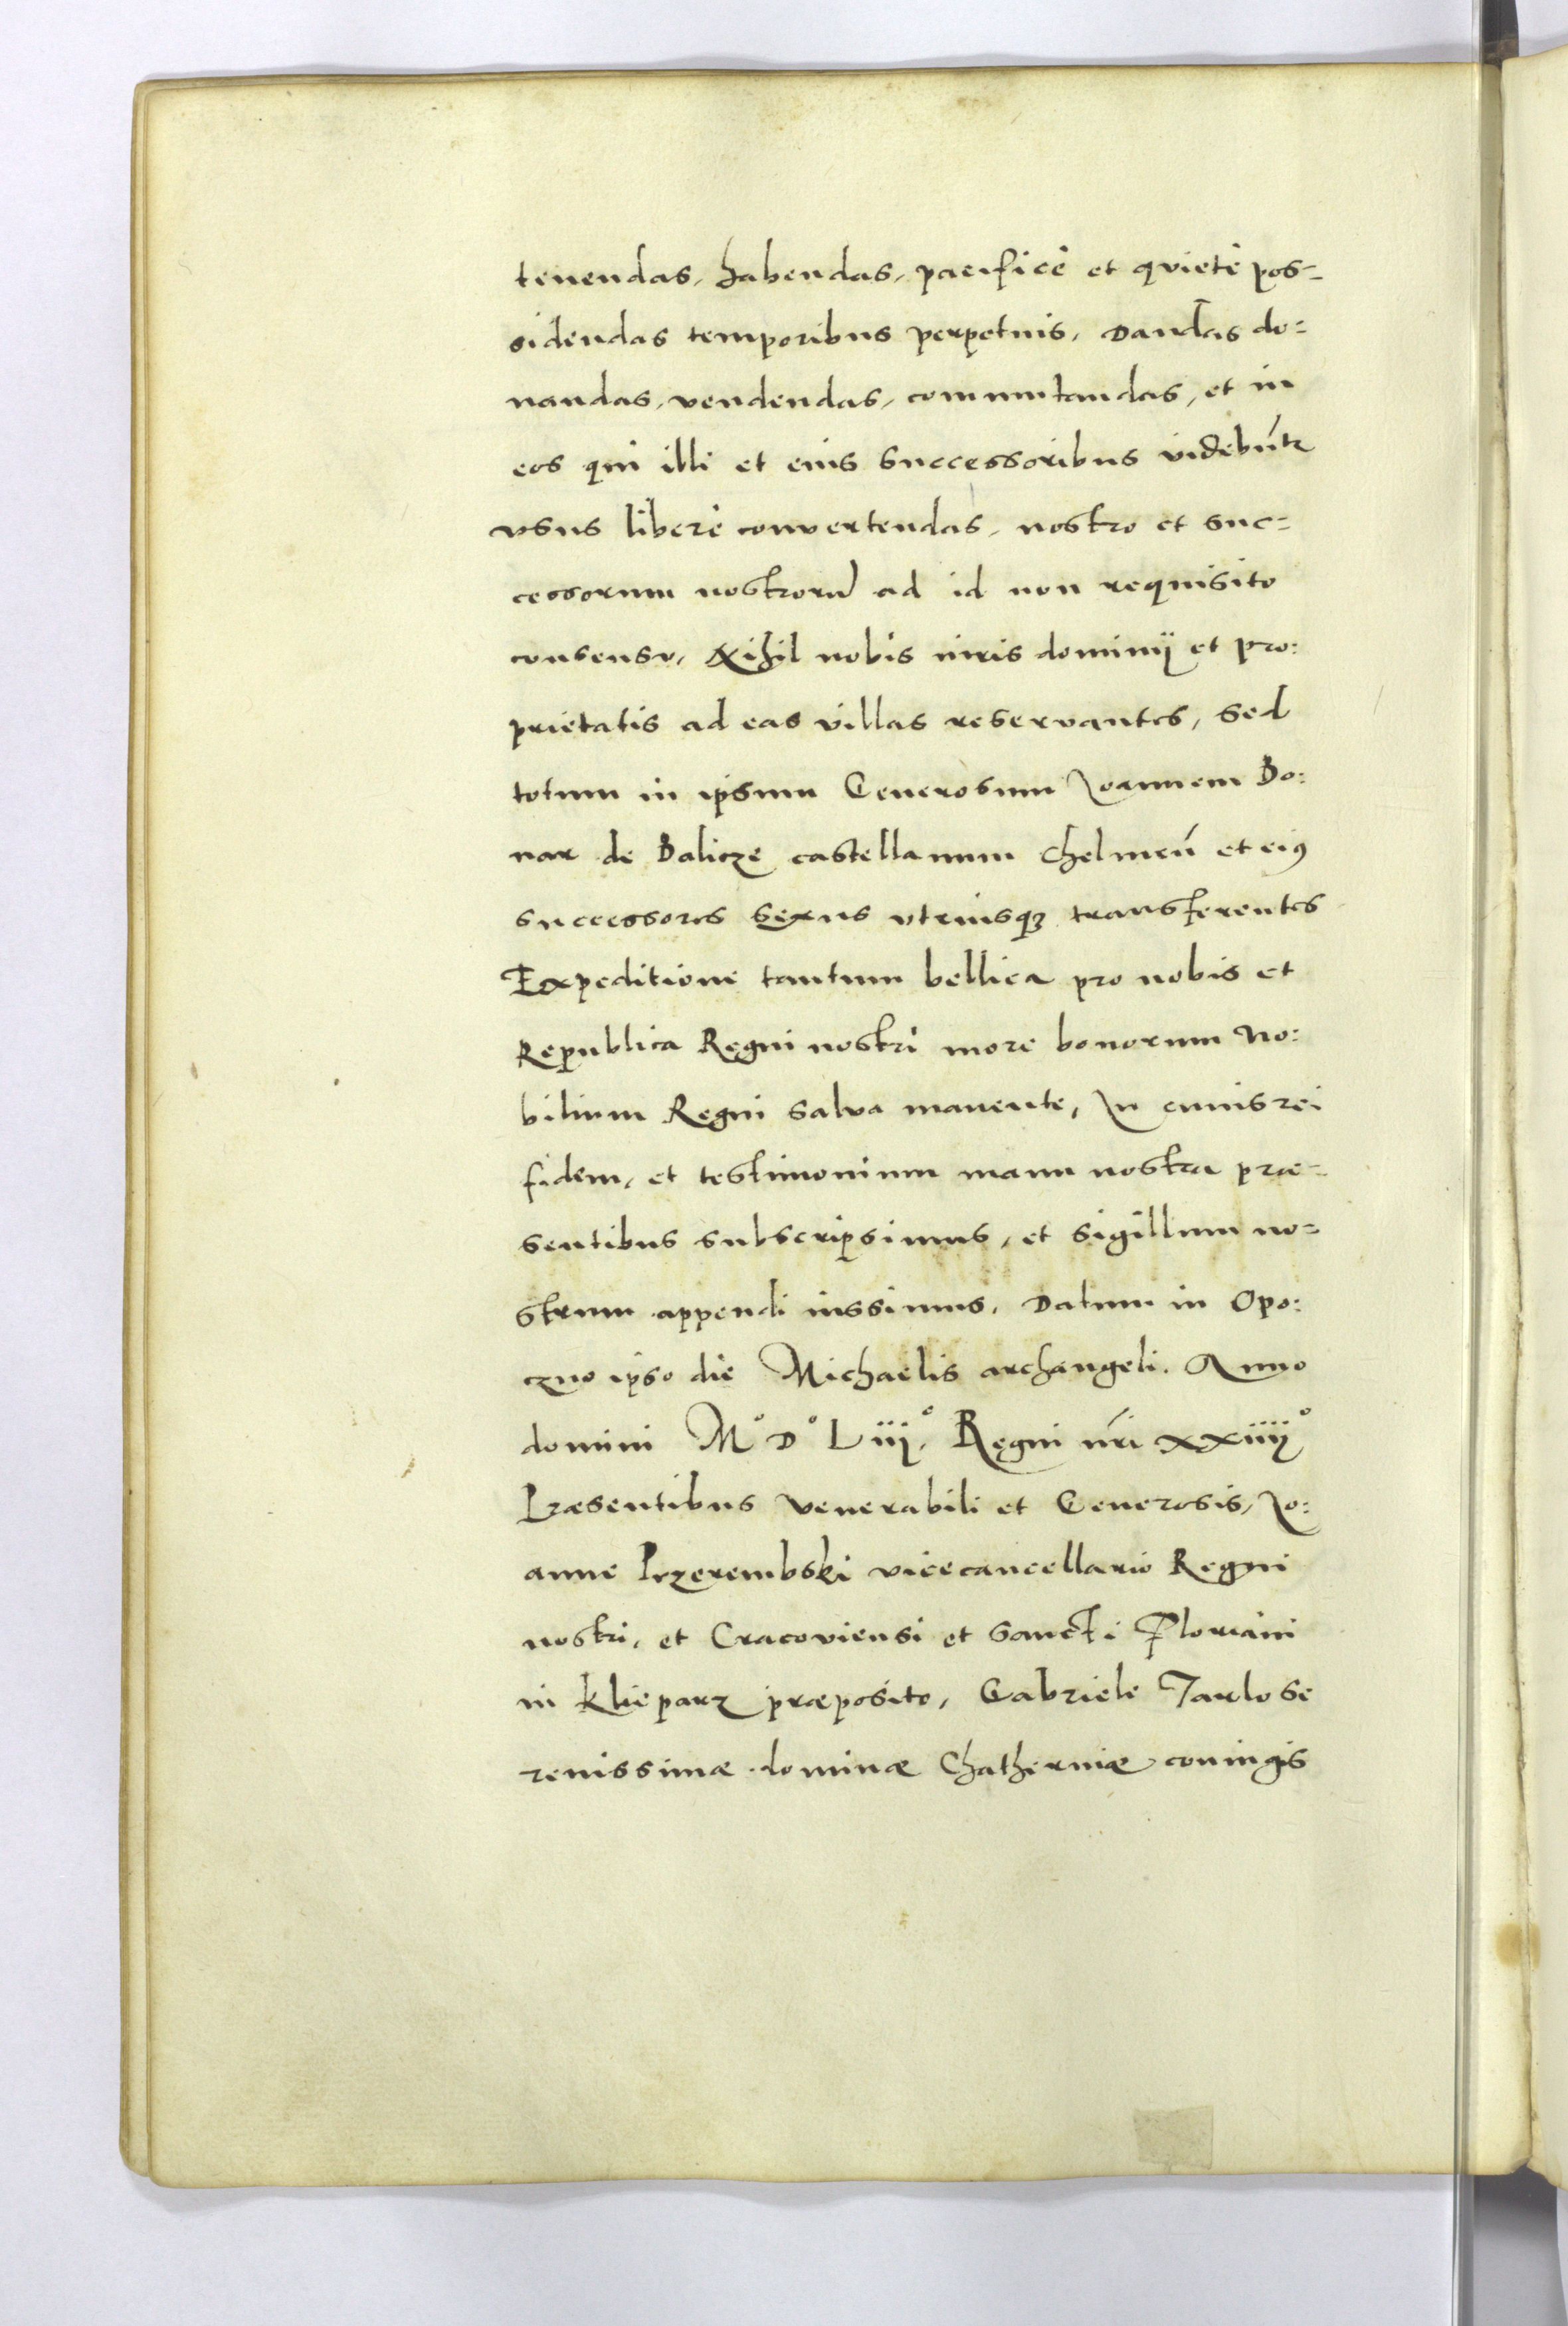 tenendas, habendas, pacificè et quietè pos-
sidendas temporibus perpetuis, Dandas do:
nandas, vendendas, commutandas, et in
eos qui illi et eius successoribus videbũtr
vsus liberè convertendas, nostro et suc:
cessorum nostrorũ ad id non requisito
consensu, Nihil nobis iuris dominij et pro:
prietatis ad eas villas reservantes, Sed
totum in ipsum Generosum Joannem Bo:
nar de Balicze castellanum Chelmeñ et ei9
successores sexus vtriusq3 transferentes
Expeditione tantum bellica pro nobis et
Republica Regni nostri more bonorum No:
bilium Regni salva manente, In cuius rei
fidem, et testimonium manu nostra præ-
sentibus subscripsimus, et sigillum no-
strum appendi iussimus, Datum in Opo:
czno ipso die Michaelis archangeli. Anno
domini M° D° Liij°, Regni nr̃i xxiiij°
Præsentibus Venerabili et Generosis, Jo:
anne Przerembski vicecancellario Regni
nostri, et Cracoviensi et Sancti Floriani
in Klieparz præposito, Gabriele Tarlo Se
renissimæ dominæ Chatherinæ coniugis